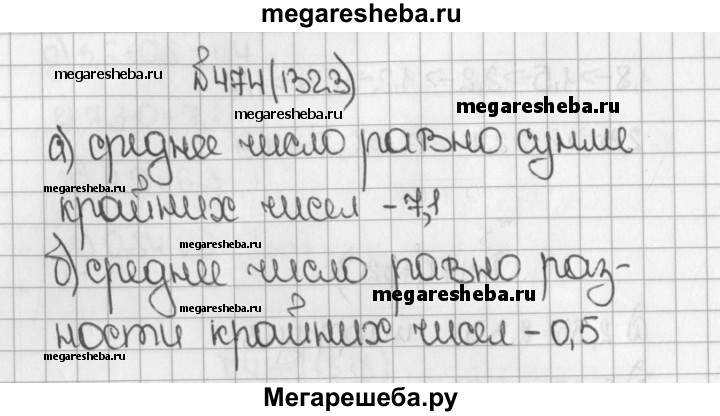 megaresheba.ru
№474(1323)
megaresheba.ru
megaresheba.ru
megaresheba.ru
а) среднее число равно сумме
megaresheba.ru
крайних чисел - 7,1
megaresheba.ru
б) среднее число равно раз-
megaresheba.ru
megaresheba.ru
ности крайних чисел - 0,5
megaresheba.ru
Мегарешеба.ру